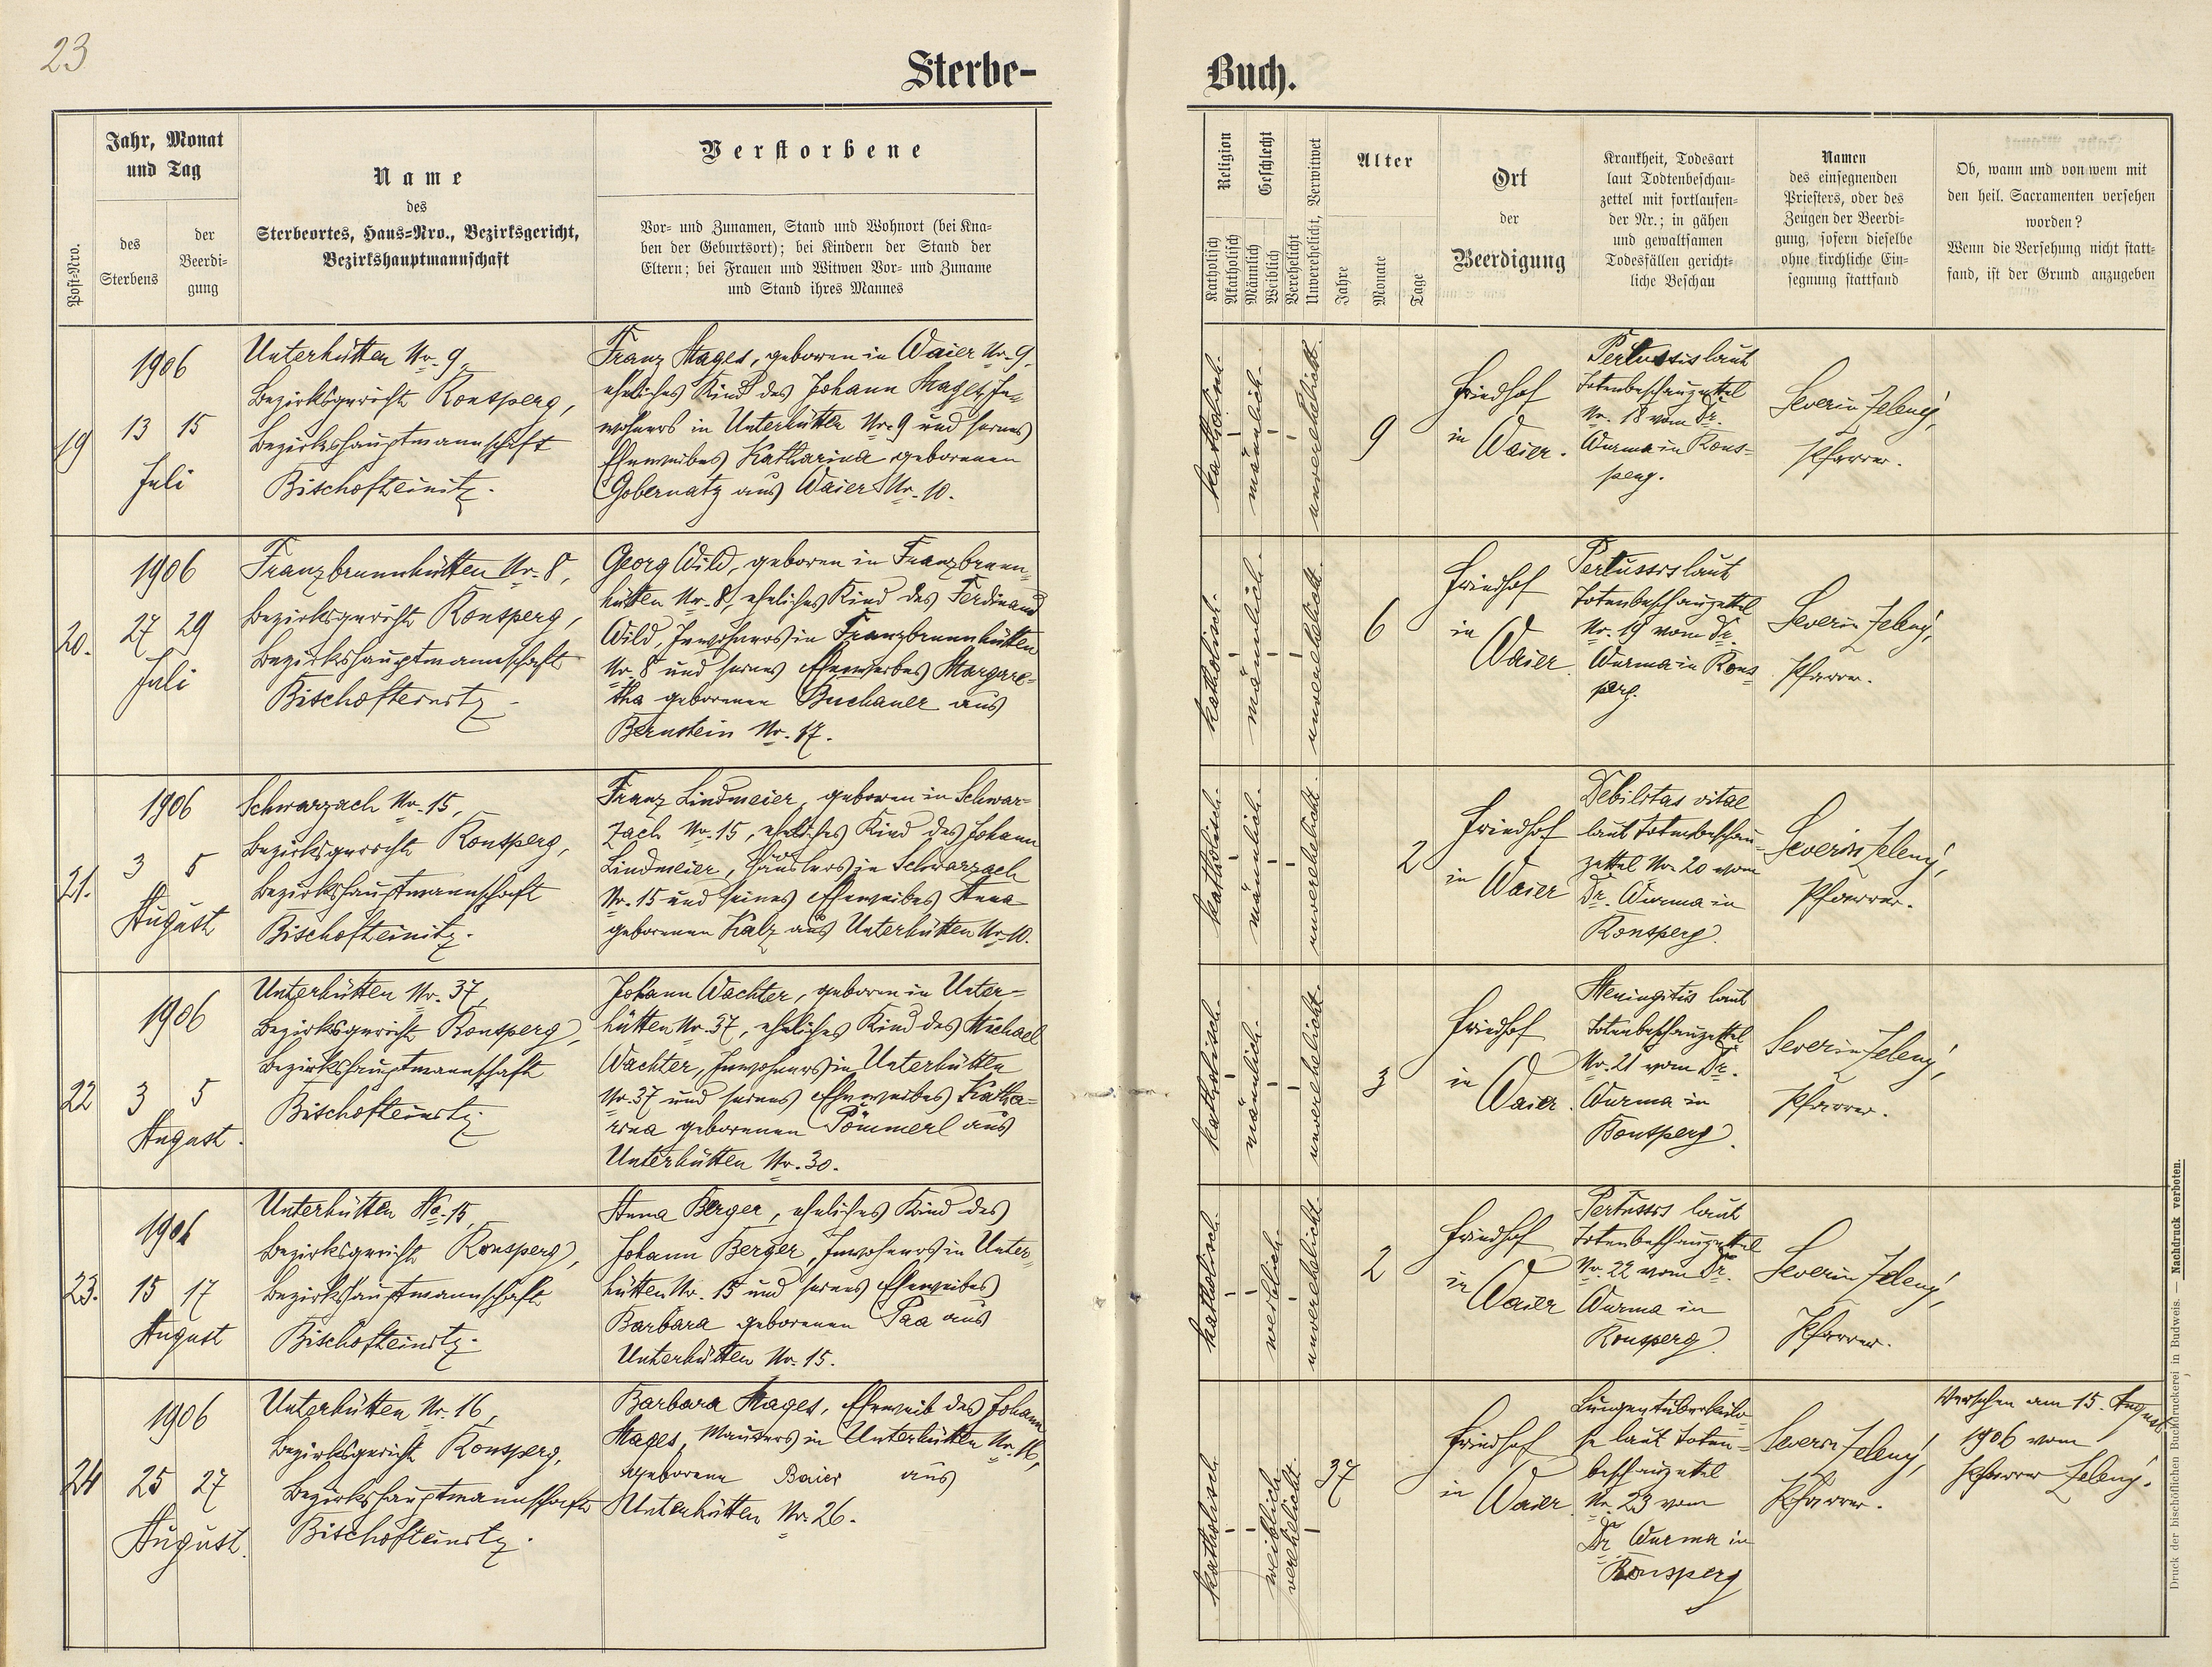 23
Sterbe-
Buch.
Post-Nro.
Jahr, Monat
und Tag
des
Sterbens
der
Beerdi-
gung
Name
des
Sterbeortes, Haus-Nro., Bezirksgericht,
Bezirkshauptmannschaft
Verstorbene
Vor- und Zunamen, Stand und Wohnort (bei Kna-
ben der Geburtsort); bei Kindern der Stand der
Eltern; bei Frauen und Witwen Vor- und Zuname
und Stand ihres Mannes
Religion
Katholisch
Akatholisch
Geschlecht
Männlich
Weiblich
Verehelicht
Unverehelicht, Verwitwet
Alter
Jahre
Monate
Tage
Ort
der
Beerdigung
Krankheit, Todesart
laut Todtenbeschau-
zettel mit fortlaufen-
der Nr.; in gähen
und gewaltsamen
Todesfällen gericht-
liche Beschau
Namen
des einsegnenden
Priesters, oder des
Zeugen der Beerdi-
gung, sofern dieselbe
ohne kirchliche Ein-
segnung stattfand
Ob, wann und von wem mit
den heil. Sacramenten versehen
worden?
Wenn die Versehung nicht statt-
fand, ist der Grund anzugeben
19
1906
13 15
Juli
Unterhütten Nr. 9,
Bezirksgericht Ronsperg,
Bezirkshauptmannschaft
Bischofteinitz.
Franz Mages, geboren in Waier Nr. 9,
eheliches Kind des Johann Mages, In-
wohners in Unterhütten Nr. 9 und seines
Eheweibes Katharina geborenen
Gobernatz aus Waier Nr. 10.
katholisch.
männlich.
unverehelicht.
9
Friedhof
in
Waier.
Pertussis laut
Totenbeschauzettel
Nr. 18 vom Dr.
Wurma in Rons-
perg.
Severin Zelený,
Pfarrer.
20.
1906
27 29
Juli
Franzbrunnhütten Nr. 8,
Bezirksgericht Ronsperg,
Bezirkshauptmannschaft
Bischofteinitz.
Georg Wild, geboren in Franzbrunn-
hütten Nr. 8, eheliches Kind des Ferdinand
Wild, Inwohners in Franzbrunnhütten
Nr. 8 und seines Eheweibes Margare-
tha geborenen Buchauer aus
Bernstein Nr. 17.
katholisch.
männlich.
unverehelicht.
6
Friedhof
in
Waier.
Pertussis laut
Totenbeschauzettel
Nr. 19 vom Dr.
Wurma in Rons-
perg.
Severin Zelený,
Pfarrer.
21.
1906
3 5
August
Schwarzach Nr. 15,
Bezirksgericht Ronsperg,
Bezirkshauptmannschaft
Bischofteinitz.
Franz Lindmeier, geboren in Schwar-
zach Nr. 15, eheliches Kind des Johann
Lindmeier, Häuslers in Schwarzach
Nr. 15 und seines Eheweibes Anna
geborenen Kalz aus Unterhütten Nr. 10.
katholisch.
männlich.
unverehelicht.
2
Friedhof
in Waier
Debilitas vitae
laut Totenbeschau-
zettel Nr. 20 vom
Dr. Wurma in
Ronsperg.
Severin Zelený,
Pfarrer.
22
1906
3 5
August.
Unterhütten Nr. 37,
Bezirksgericht Ronsperg,
Bezirkshauptmannschaft
Bischofteinitz.
Johann Wachter, geboren in Unter-
hütten Nr. 37, eheliches Kind des Michael
Wachter, Inwohners in Unterhütten
Nr. 37 und seines Eheweibes Katha-
rina geborenen Pömmerl aus
Unterhütten Nr. 30.
katholisch.
männlich.
unverehelicht.
3
Friedhof
in
Waier.
Meningitis laut
Totenbeschauzettel
Nr. 21 vom Dr.
Wurma in
Ronsperg.
Severin Zelený,
Pfarrer.
23.
1906
15 17
August
Unterhütten No. 15,
Bezirksgericht Ronsperg,
Bezirkshauptmannschaft
Bischofteinitz.
Anna Berger, eheliches Kind des
Johann Berger, Inwohners in Unter-
hütten Nr. 15 und seines Eheweibes
Barbara geborenen Paa aus
Unterhütten Nr. 15.
katholisch.
weiblich.
unverehelicht.
2
Friedhof
in
Waier
Pertussis laut
Totenbeschauzettel
Nr. 22 vom Dr.
Wurma in
Ronsperg.
Severin Zelený,
Pfarrer.
24
1906
25 27
August.
Unterhütten Nr. 16,
Bezirksgericht Ronsperg,
Bezirkshauptmannschaft
Bischofteinitz.
Barbara Mages, Eheweib des Johann
Mages, Maurers in Unterhütten Nr. 16,
geborene Baier aus
Unterhütten Nr. 26.
katholisch.
weiblich
verehelicht.
37
Friedhof
in
Waier.
Lungentuberkulo-
se laut Toten-
beschauzettel
Nr. 23 vom
Dr. Wurma in
Ronsperg
Severin Zelený,
Pfarrer.
Versehen am 15. August
1906 vom
Pfarrer Zelený.
Druck der bischöflichen Buchdruckerei in Budweis. — Nachdruck verboten.